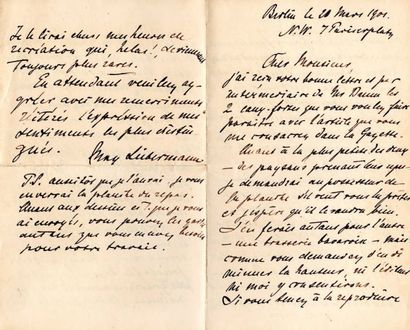 Berlin le 20 Mars 1901.
N.W. 7 Pariserplatz
Cher Monsieur,
j'ai reçu votre bonne lettre et par l'
intermédiaire de Mr
2 eaux-fortes que vous voulez faire
paraître avec l'article que vous
me consacrez dans la Gazette.
Quant à la plus petite des deux
– des paysans prenant leur repas –
je demandrai au possesseur de
la planche s'il veut vous le prêter
et j'espère qu'il le voudra bien.
J'en ferais autant pour l'autre
– une brasserie bavaroise – mais
comme vous demandez d'en di
minuer la hauteur, ni l'éditeur
ni moi y consentirons.
Si vous tenez à la reproduire
Je le lirai dans mes heures de
récréation qui, hélas!, deviennent
toujours plus rares.
En attendant veuillez ag-
réer avec mes remerciments
réitérés l'expression de mes
sentiments les plus distin
gués.
Max Liebermann
P.S. aussitôt que je l'aurai, je vous
enverrai la planche du repas.
Quant aux dessins et que je vous
ai envoyés, vous pouvez les garder
autant que vous en avez besoin
pour votre travail.